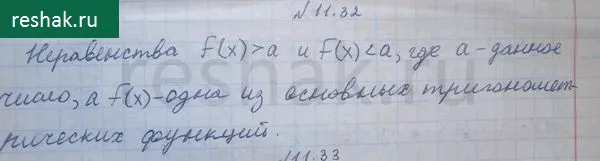 reshak.ru
№11.32
Неравенства f(x)>a и f(x)<a, где a-данное
число, а f(x)-одна из основных тригономет-
рических функций.
№11.33